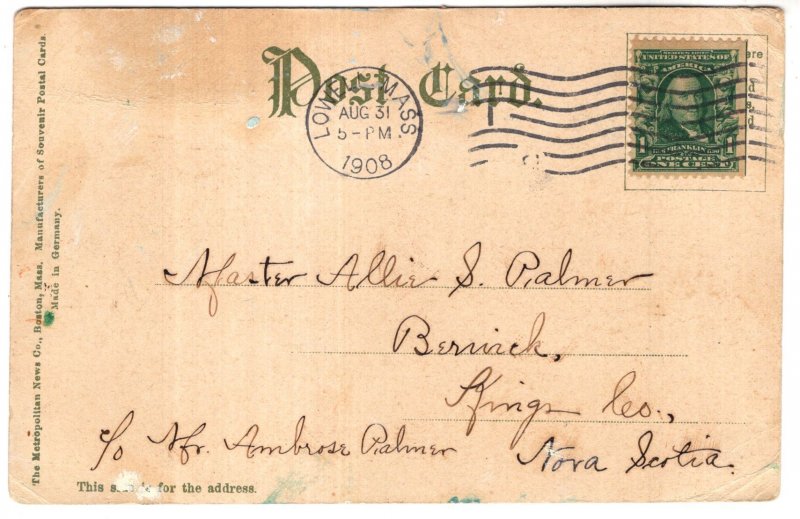 Post Card.
LOWELL MASS
AUG 31
5-PM
1908
SERIES 1902
UNITED STATES OF
AMERICA
FRANKLIN
POSTAGE
ONE CENT
Master Allie S. Palmer
Berwick,
Kings Co.,
Nova Scotia.
c/o Mr. Ambrose Palmer
This side is for the address.
The Metropolitan News Co., Boston, Mass. Manufacturers of Souvenir Postal Cards.
Made in Germany.